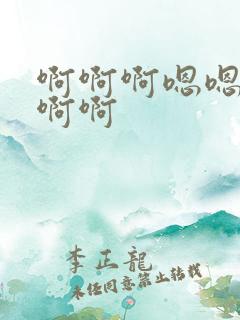 啊啊啊嗯嗯
啊啊
李正龍
未经同意禁止转载